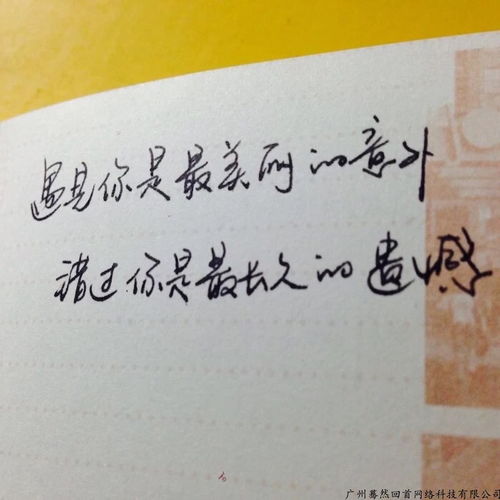 遇见你是最美丽的意外
错过你是最长久的遗憾
广州蓦然回首网络科技有限公司